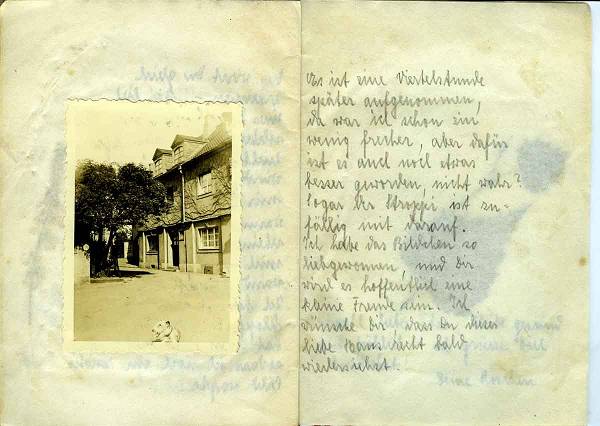 Es ist eine Viertelstunde
später aufgenommen,
da war ich schon ein
wenig frecher, aber dafür
ist es auch noch etwas
besser geworden, nicht wahr?
Sogar der Stroppi ist zu-
fällig mit darauf.
Ich habe das Bildchen so
liebgewonnen, und dir
wird es hoffentlich eine
kleine Freude sein. Ich
wünsche Dir, dass Du dieses
liebe bald
wiedersiehst!
Deine